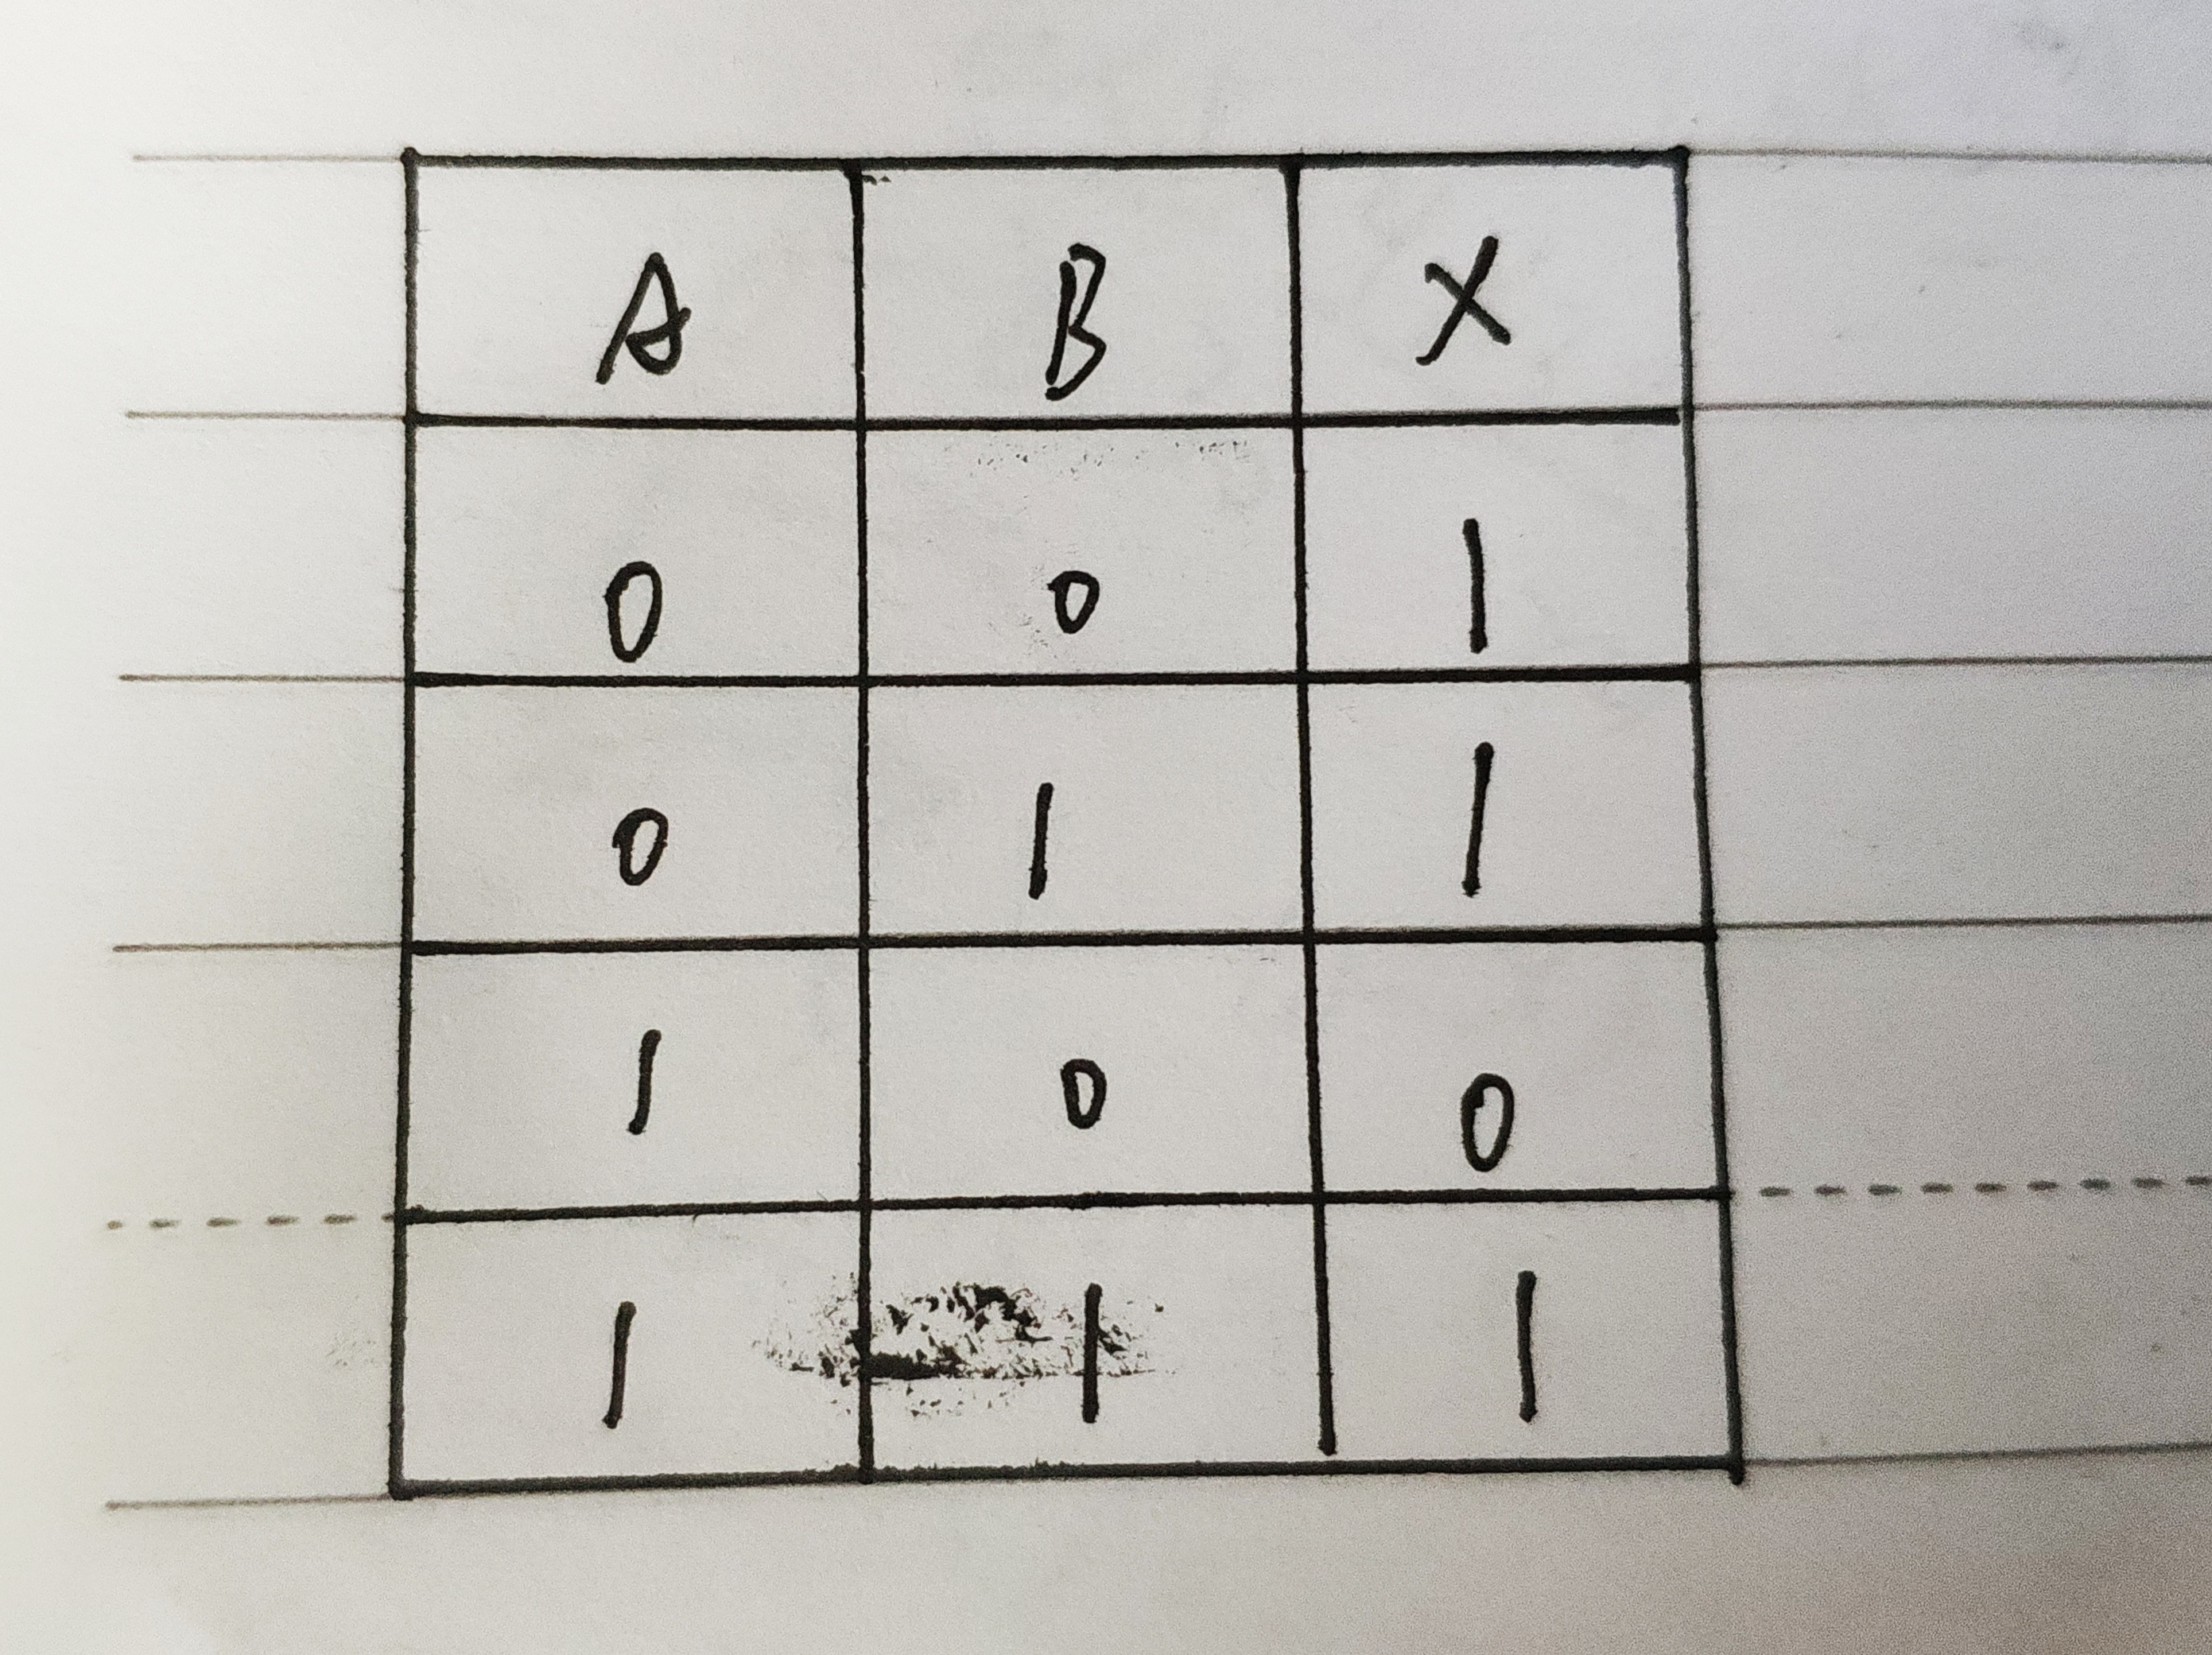 A B X
0 0 1
0 1 1
1 0 0
1 1 1